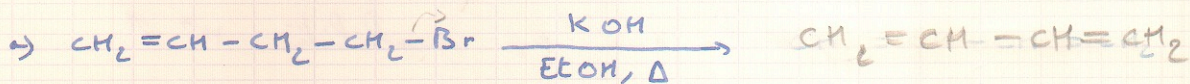 a) CH₂=CH-CH₂-CH₂-Br KOH EtOH, Δ → CH₂=CH-CH=CH₂